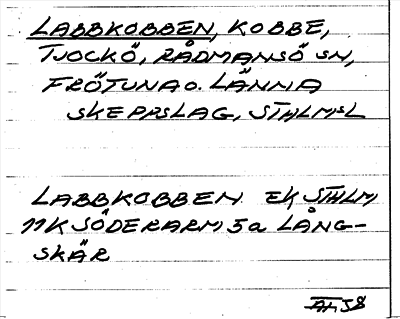 LABBKOBBEN, KOBBE,
TJOCKÖ, RÅDMANSÖ SN,
FRÖTUNA O. LÄNNA
SKEPPSLAG, STHLMSL
LABBKOBBEN EK STHLM
11K SÖDERARM 5a LÅNG-
SKÄR